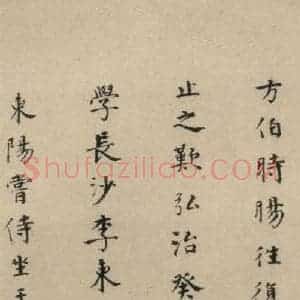 方伯時暘往復
止之歎弘治癸
學長沙李東
東陽嘗侍坐
Shufaziliao.com